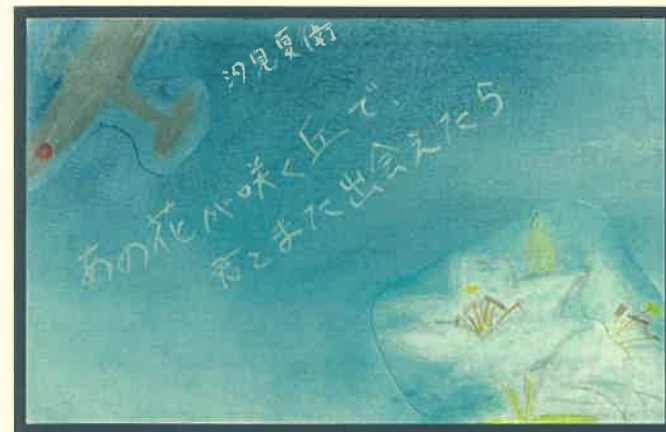 汐見夏衛
あの花が咲く丘で、
君とまた出会えたら